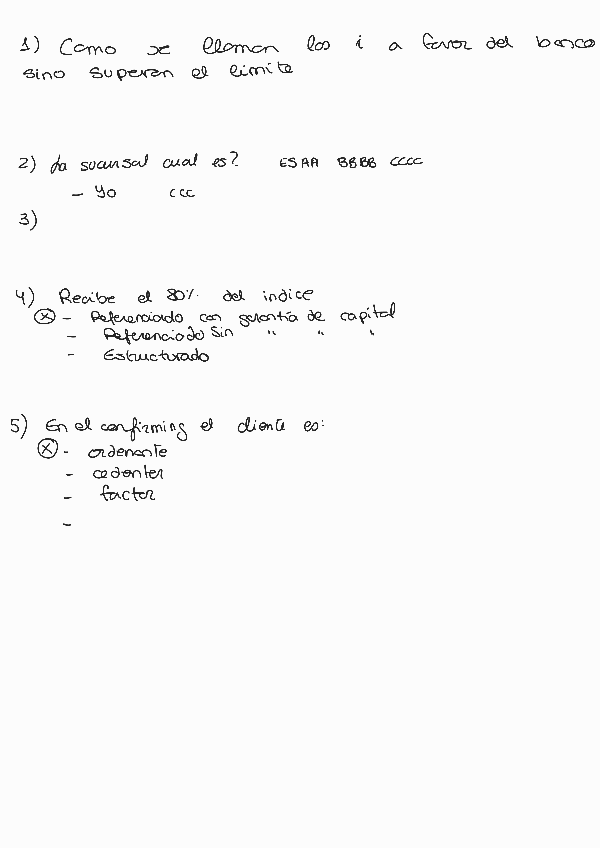 1) Como se llaman los i a favor del banco
sino superan el limite
2) La sucursal cual es? ESAA BBBB CCCC
- Yo CCC
3)
4) Recibe el 80% del indice
(X) - Referenciado con garantía de capital
- Referenciado Sin " " "
- Estructurado
5) En el confirming el cliente es:
(X) - ordenante
- cedenter
- factor
-